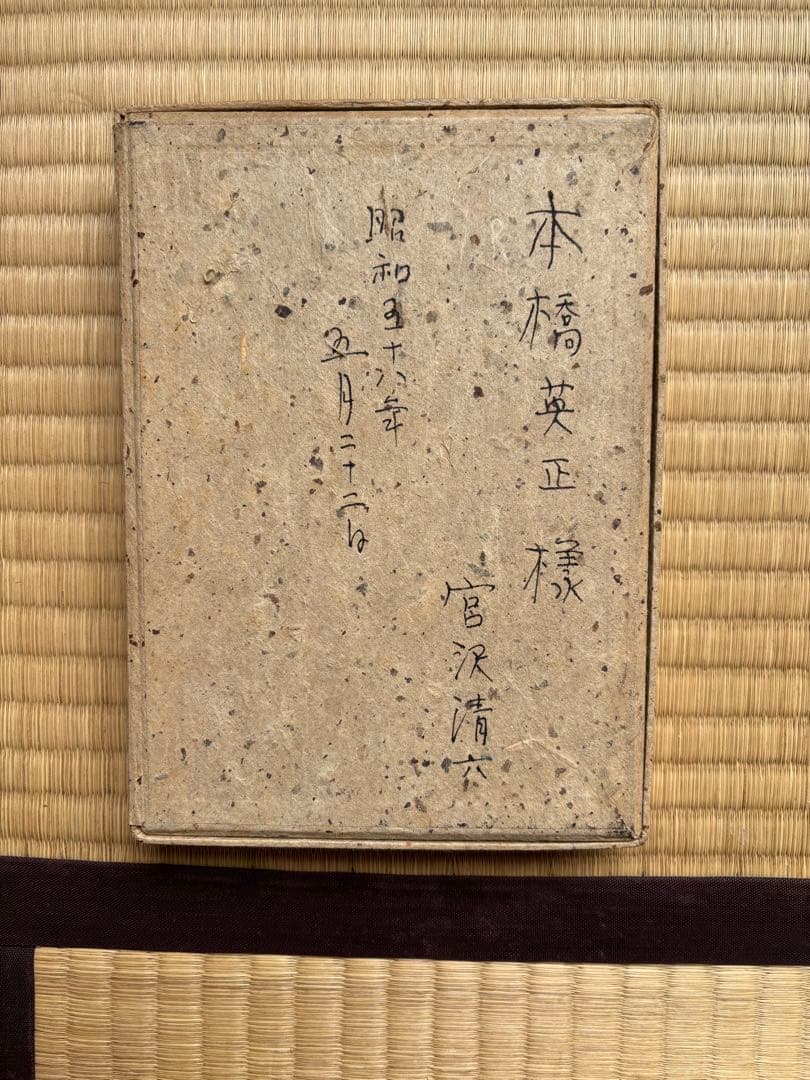 本橋英正様
宮沢清六
昭和五十六年
五月二十二日